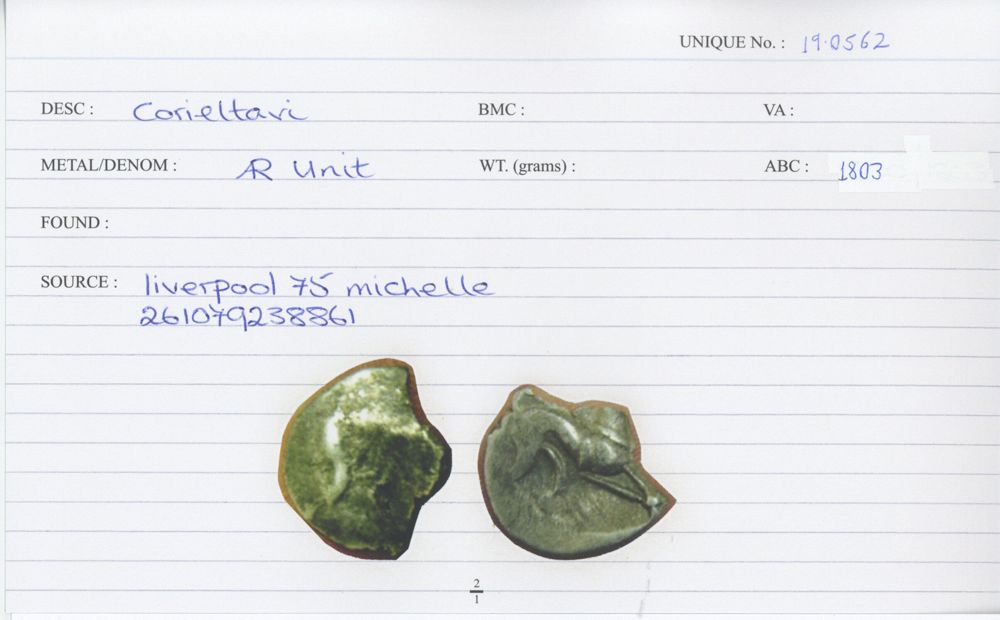 UNIQUE No. : 19.0562
DESC : Corieltavi BMC : VA :
METAL/DENOM : AR Unit WT. (grams) : ABC : 1803
FOUND :
SOURCE : liverpool 75 michelle
261079238861
2
1